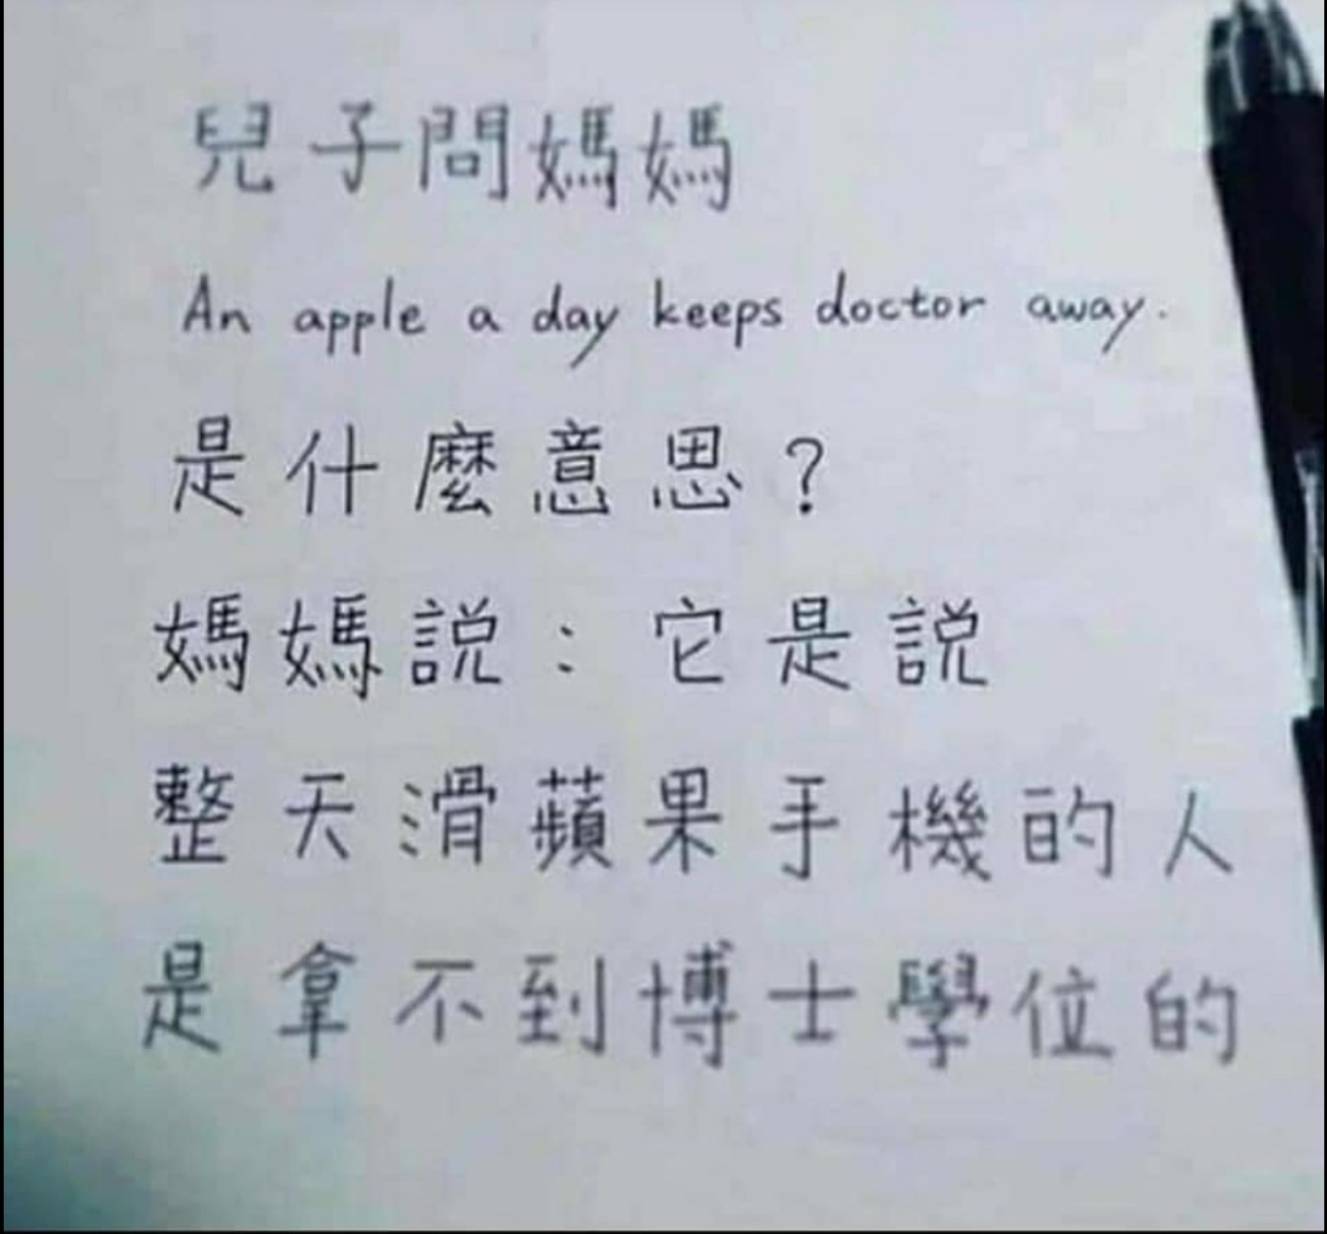 兒子問媽媽
An apple a day keeps doctor away.
是什麼意思?
媽媽說:它是說
整天滑蘋果手機的人
是拿不到博士學位的